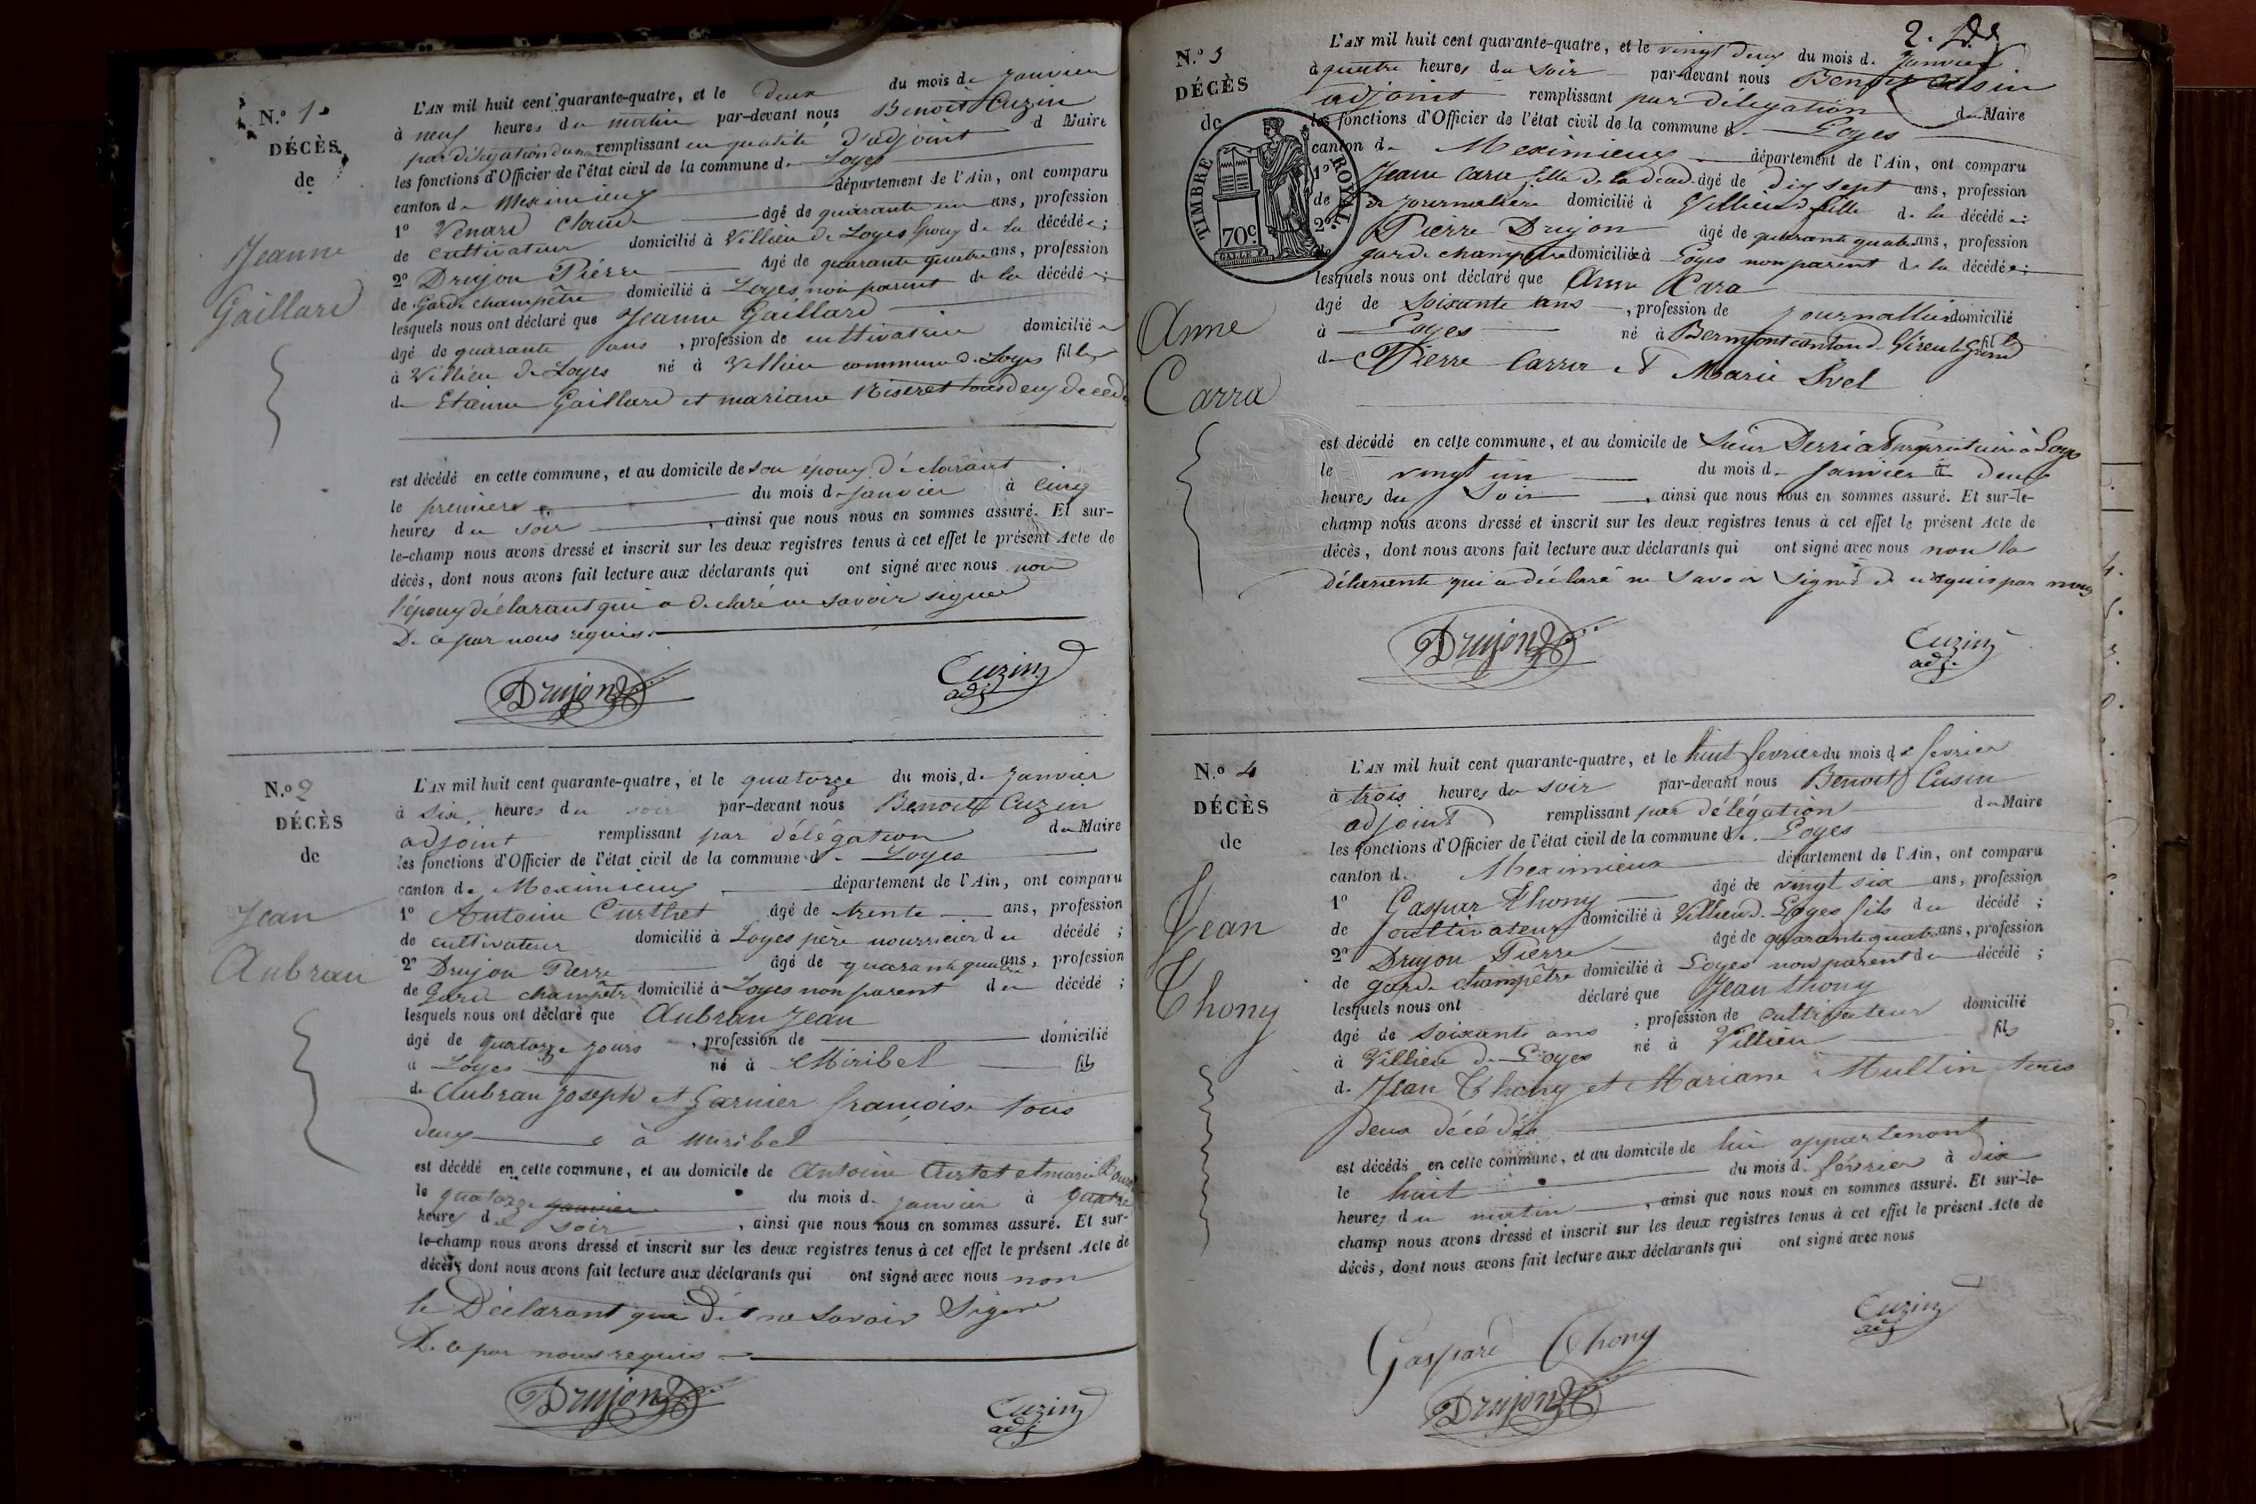 N.° 1
DÉCÈS
de
Jeanne
Gaillard
L'AN mil huit cent quarante-quatre, et le deux du mois de Janvier
à neuf heures du matin par-devant nous Benoit Cuzin
par délégation du remplissant en qualité d'adjoint d Maire
les fonctions d'Officier de l'état civil de la commune de Loyes
canton de Meximieux département de l'Ain, ont comparu
1° Venard Claude âgé de quarante un ans, profession
de cultivateur domicilié à Villieu de Loyes époux de la décédée;
2° Drujon Pierre âgé de quarante quatre ans, profession
de Garde champêtre domicilié à Loyes non parent de la décédée;
lesquels nous ont déclaré que Jeanne Gaillard
âgé de quarante ans, profession de cultivatrice domicilié
à Villieu de Loyes né à Villieu commune de Loyes fille
de Etienne Gaillard et mariane Riseret tous deux décédé
est décédé en cette commune, et au domicile de son époux déclarant
le premiers du mois de janvier à cinq
heures du soir, ainsi que nous nous en sommes assuré. Et sur-
le-champ nous avons dressé et inscrit sur les deux registres tenus à cet effet le présent Acte de
décès, dont nous avons fait lecture aux déclarants qui ont signé avec nous non
l'époux déclarant qui a déclaré ne savoir signer
De ce par nous requis.
Drujon
Cuzin
adj.
N.° 2
DÉCÈS
de
Jean
Aubran
L'AN mil huit cent quarante-quatre, et le quatorze du mois de Janvier
à six heures du soir par-devant nous Benoit Cuzin
adjoint remplissant par délégation du Maire
les fonctions d'Officier de l'état civil de la commune de Loyes
canton de Meximieux département de l'Ain, ont comparu
1° Antoine Curthet âgé de trente ans, profession
de cultivateur domicilié à Loyes père nourricier du décédé;
2° Drujon Pierre âgé de quarante quatre ans, profession
de Garde champêtre domicilié à Loyes non parent du décédé;
lesquels nous ont déclaré que Aubran Jean
âgé de quatorze jours, profession de domicilié
à Loyes né à Miribel fils
de Aubran Joseph et Garnier françoise tous
deux à Miribel
est décédé en cette commune, et au domicile de Antoine Curtet et marie
le quatorze janvier du mois de janvier à quatre
heures de soir, ainsi que nous nous en sommes assuré. Et sur-
le-champ nous avons dressé et inscrit sur les deux registres tenus à cet effet le présent Acte de
décès, dont nous avons fait lecture aux déclarants qui ont signé avec nous non
le Déclarant qui dit ne savoir signer
De ce par nous requis
Drujon
Cuzin
adj
2.
N.° 3
DÉCÈS
de
TIMBRE ROYAL
70c
Anne
Carra
L'AN mil huit cent quarante-quatre, et le vingt deux du mois d. Janvier
à quatre heures du soir par-devant nous Benoit Cusin
adjoint remplissant par délégation du Maire
les fonctions d'Officier de l'état civil de la commune d. Loyes
canton de Meximieux département de l'Ain, ont comparu
1° Jeanne Cara fille de la décéd. âgé de dix sept ans, profession
de journalière domicilié à Villieu fille de la décédée;
2° Pierre Drujon âgé de quarante quatre ans, profession
de garde champêtre domicilié à Loyes non parent de la décédée;
lesquels nous ont déclaré que Anne Cara
âgé de soixante ans, profession de journalière domicilié
à Loyes né à canton d. fille
de Pierre Carra et Marie
est décédé en cette commune, et au domicile de sieur Derriat propriétaire à Loyes
le vingt un du mois de Janvier à deux
heures du soir, ainsi que nous nous en sommes assuré. Et sur-le-
champ nous avons dressé et inscrit sur les deux registres tenus à cet effet le présent Acte de
décès, dont nous avons fait lecture aux déclarants qui ont signé avec nous non la
délarente qui a déclaré ne savoir signé de ce requis par nous
Drujon
Cuzin
adj.
N.° 4
DÉCÈS
de
Jean
Thony
L'AN mil huit cent quarante-quatre, et le huit fevrier du mois de fevrier
à trois heures du soir par-devant nous Benoit Cusin
adjoint remplissant par délégation du Maire
les fonctions d'Officier de l'état civil de la commune de Loyes
canton d. Meximieux département de l'Ain, ont comparu
1° Gaspar Thony âgé de vingt six ans, profession
de cultivateur domicilié à Villieu d. Loyes fils du décédé;
2° Drujon Pierre âgé de quarante quatre ans, profession
de garde champêtre domicilié à Loyes non parent du décédé;
lesquels nous ont déclaré que Jean Thony
âgé de soixante ans, profession de cultivateur domicilié
à Villieu de Loyes né à Villieu fils
d. Jean Thony et Mariane Multin tous
deux décédés
est décédé en cette commune, et au domicile de lui appartenant
le huit du mois d. février à dix
heures du matin, ainsi que nous nous en sommes assuré. Et sur-le-
champ nous avons dressé et inscrit sur les deux registres tenus à cet effet le présent Acte de
décès, dont nous avons fait lecture aux déclarants qui ont signé avec nous
Cuzin
adj
Gaspard Thony
Drujon